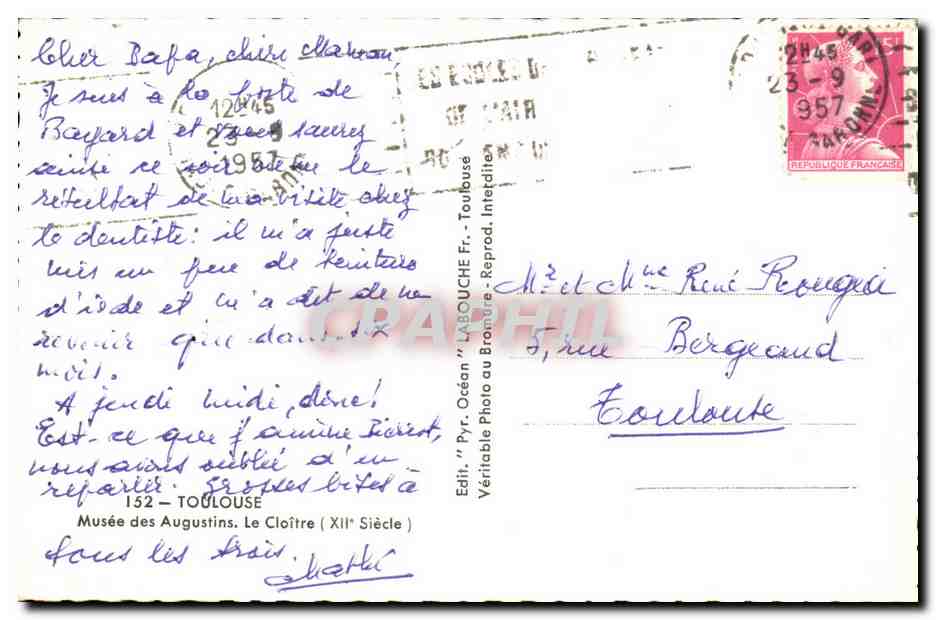 Cher Papa, chère Maman,
Je suis à la poste de
Bayard et vous saurez
ainsi ce soir même le
résultat de ma visite chez
le dentiste : il m'a juste
mis un peu de teinture
d'iode et m'a dit de ne
revenir que dans six
mois.
A jeudi midi, donc !
Est-ce que j'amène Pierrot,
nous avons oublié d'en
reparler. Grosses bises à
152 - TOULOUSE
Musée des Augustins. Le Cloître (XIIe Siècle)
tous les trois.
Edit. "Pyr. Océan" LABOUCHE Fr. - Toulouse
Véritable Photo au Bromure - Reprod. Interdite
12H45
23-9
1957
12H45
23-9
1957
GARONNE
DE L'AIR
REPUBLIQUE FRANÇAISE
Mr et Mme René
5, rue Bergeaud
Toulouse
CPAPHIL